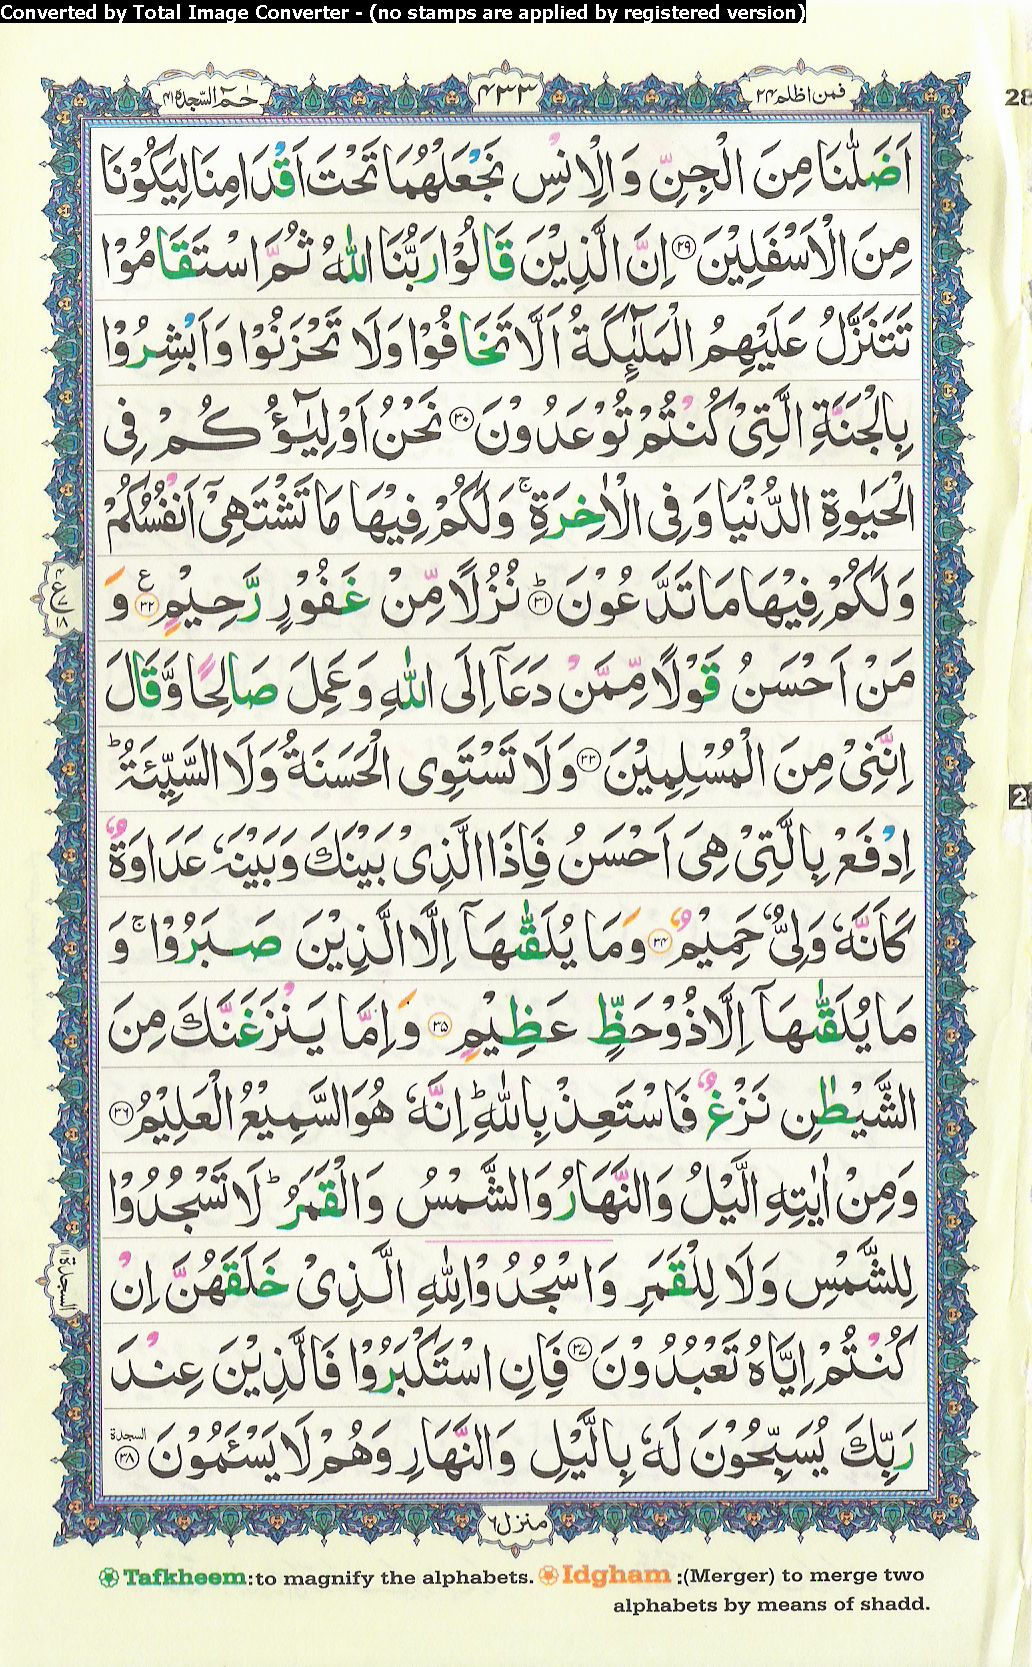 Converted by Total Image Converter - (no stamps are applied by registered version)
فمن اظلم ٢٤ ٤٣٣ حٰمٓ السّجدة ٤١
28
اَضَلّٰنَا مِنَ الْجِنِّ وَالْاِنْسِ نَجْعَلْهُمَا تَحْتَ اَقْدَامِنَا لِيَكُوْنَا
مِنَ الْاَسْفَلِيْنَ ٢٩ اِنَّ الَّذِيْنَ قَالُوْا رَبُّنَا اللّٰهُ ثُمَّ اسْتَقَامُوْا
تَتَنَزَّلُ عَلَيْهِمُ الْمَلٰٓئِكَةُ اَلَّا تَخَافُوْا وَلَا تَحْزَنُوْا وَاَبْشِرُوْا
بِالْجَنَّةِ الَّتِيْ كُنْتُمْ تُوْعَدُوْنَ ٣٠ نَحْنُ اَوْلِيٰٓؤُكُمْ فِى
الْحَيٰوةِ الدُّنْيَا وَفِى الْاٰخِرَةِ ۚ وَلَكُمْ فِيْهَا مَا تَشْتَهِيْٓ اَنْفُسُكُمْ
وَلَكُمْ فِيْهَا مَا تَدَّعُوْنَ ؕ ٣١ نُزُلًا مِّنْ غَفُوْرٍ رَّحِيْمٍ ع ٣٢ وَ
٤ ع ٧ ١٨
مَنْ اَحْسَنُ قَوْلًا مِّمَّنْ دَعَآ اِلَى اللّٰهِ وَعَمِلَ صَالِحًا وَّقَالَ
اِنَّنِيْ مِنَ الْمُسْلِمِيْنَ ٣٣ وَلَا تَسْتَوِى الْحَسَنَةُ وَلَا السَّيِّئَةُ ؕ
2
اِدْفَعْ بِالَّتِيْ هِيَ اَحْسَنُ فَاِذَا الَّذِيْ بَيْنَكَ وَبَيْنَهٗ عَدَاوَةٌ
كَاَنَّهٗ وَلِيٌّ حَمِيْمٌ ٣٤ وَمَا يُلَقّٰىهَآ اِلَّا الَّذِيْنَ صَبَرُوْا ۚ وَ
مَا يُلَقّٰىهَآ اِلَّا ذُوْ حَظٍّ عَظِيْمٍ ٣٥ وَاِمَّا يَنْزَغَنَّكَ مِنَ
الشَّيْطٰنِ نَزْغٌ فَاسْتَعِذْ بِاللّٰهِ ؕ اِنَّهٗ هُوَ السَّمِيْعُ الْعَلِيْمُ ٣٦
وَمِنْ اٰيٰتِهِ الَّيْلُ وَالنَّهَارُ وَالشَّمْسُ وَالْقَمَرُ ؕ لَا تَسْجُدُوْا
لِلشَّمْسِ وَلَا لِلْقَمَرِ وَاسْجُدُوْا لِلّٰهِ الَّذِيْ خَلَقَهُنَّ اِنْ
السجدة ١١
كُنْتُمْ اِيَّاهُ تَعْبُدُوْنَ ٣٧ فَاِنِ اسْتَكْبَرُوْا فَالَّذِيْنَ عِنْدَ
رَبِّكَ يُسَبِّحُوْنَ لَهٗ بِالَّيْلِ وَالنَّهَارِ وَهُمْ لَا يَسْـَٔمُوْنَ السجدة ٣٨
منزل ٦
Tafkheem:to magnify the alphabets. Idgham :(Merger) to merge two
alphabets by means of shadd.